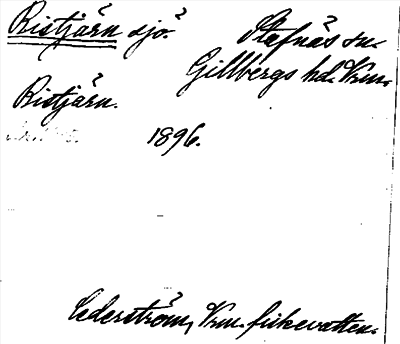 Ristjärn sjö.
Stafnäs sn.
Gillbergs hd. Vrm.
Ristjärn.
1896.
Cederström, Vrm. fiskevatten.